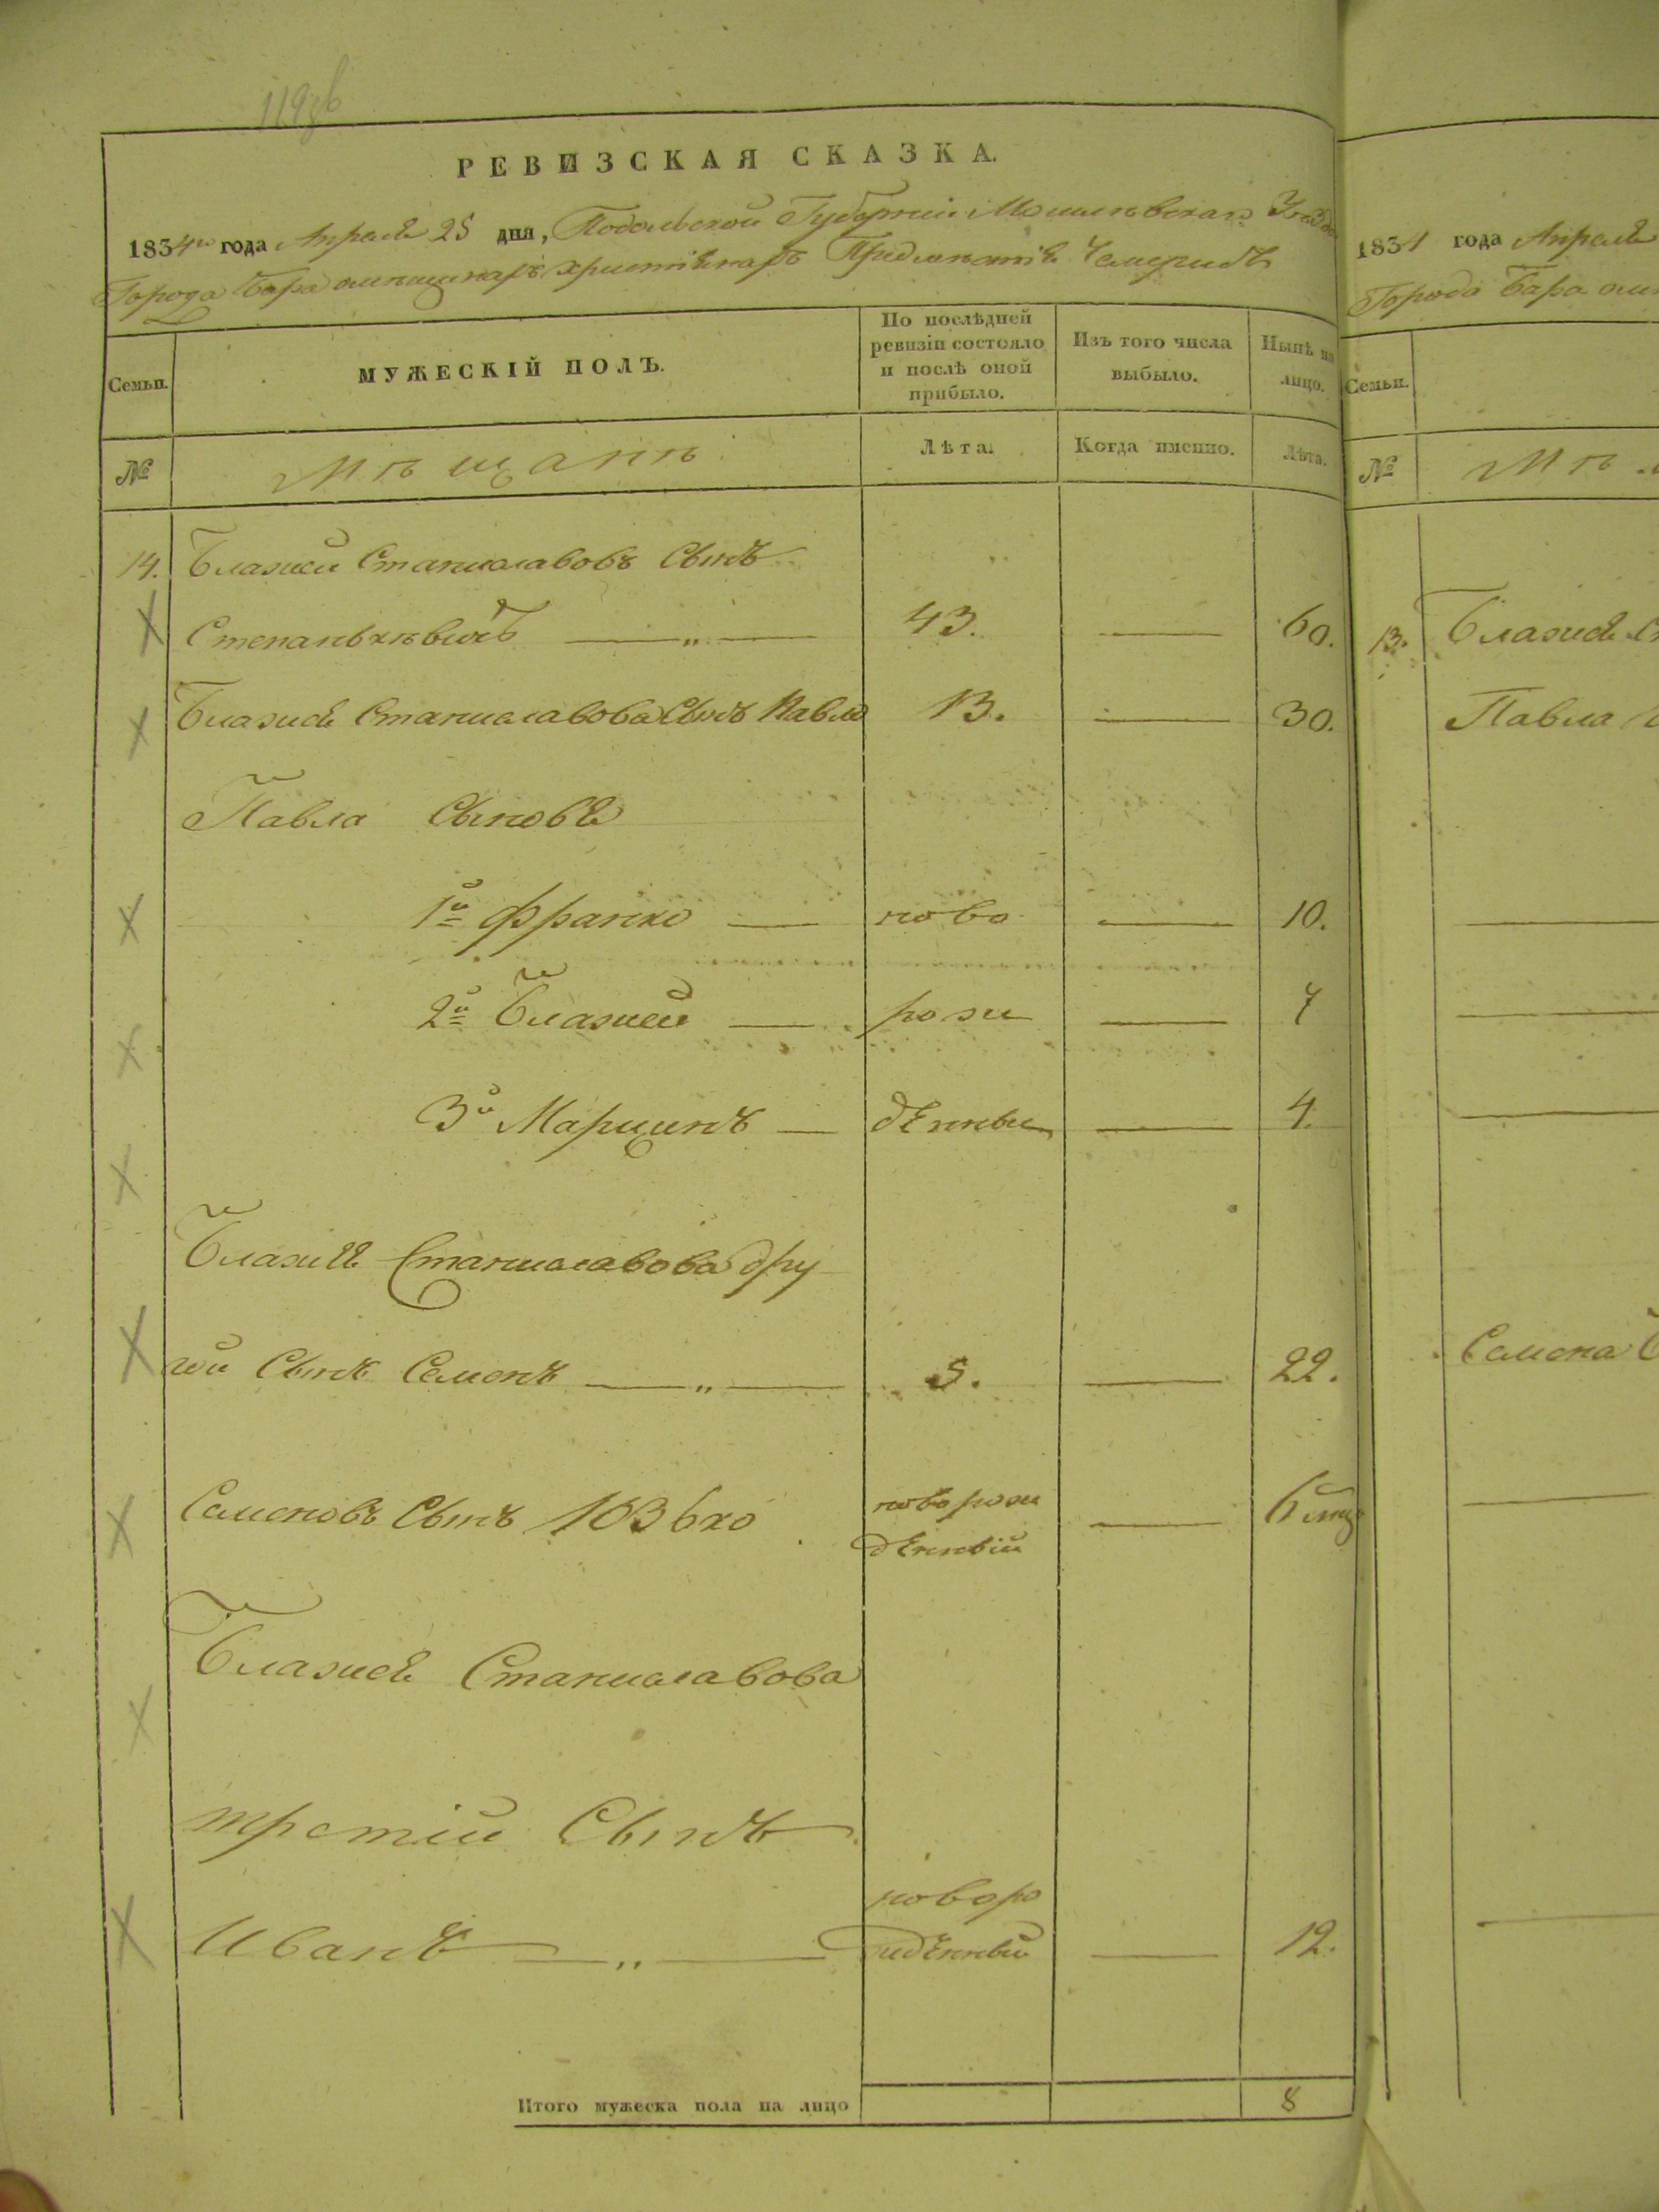 119зв
РЕВИЗСКАЯ СКАЗКА.
1834го года Апреля 25 дня, Подольской Губернии Могилевскаго Уезда
Города Бара о мещанахъ христианахъ Предместия Чемерисъ
Семьи.
МУЖЕСКІЙ ПОЛЪ.
По послѣдней ревизіи состояло и послѣ оной прибыло.
Изъ того числа выбыло.
Нынѣ на лицо.
№
Мѣщанѣ
Лѣта.
Когда именно.
Лѣта.
14. Блажей Станиславовъ Сынъ
Степанѣхѣвичъ —„— 43. — 60.
Блажея Станиславова Сынъ Павло 13. — 30.
Павла Сыновя
1й Франко — ново — 10.
2й Блажей — рож — 7
3й Марцинъ — денны — 4.
Блажея Станиславова дру
гой Сынъ Семенъ —„— 5. — 22.
Семеновъ Сынъ Юзефко новорож — 6 мцъ
денный
Блажея Станиславова
третій Сынъ
Иванъ —„— новоро
жденный — 12.
Итого мужеска пола на лицо 8
1834 года Апреля
Города Бара
Семьи.
№ Мѣ
13. Блажея
Павла
Семена